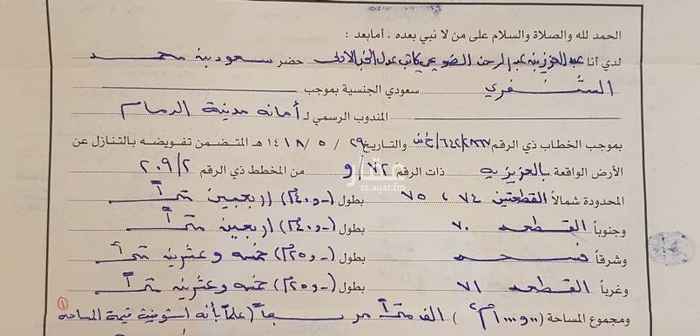 الحمد لله والصلاة والسلام على من لا نبي بعده . أما بعد :
لدي أنا عبد العزيز بن عبد الرحمن كاتب عدل الخبر الاولى حضر سعود بن محمد
سعودي الجنسية بموجب
المندوب الرسمي لـ أمانه مدينة الدمام
بموجب الخطاب ذي الرقم والتاريخ ٢٩ / ٥ / ١٤١٨ هـ المتضمن تفويضه بالتنازل عن
الأرض الواقعة بالعزيزيه ذات الرقم ٧٢/و من المخطط ذي الرقم ٢٠٩/٢
المحدودة شمالاً القطعتين ٧٤ ، ٧٥ بطول (٤٠،٠٠م) اربعين متراً
وجنوباً القطعه ٧٠ بطول (٤٠،٠٠م) اربعين متراً
وشرقاً بطول (٢٥،٠٠م) خمسه وعشرين متراً
وغرباً القطعه ٧١ بطول (٢٥،٠٠م) خمسه وعشرين متراً
ومجموع المساحة (١٠٠٠،٠٠م٢) الف متراً مربعاً (علماً بأنه استوفيت قيمة المساحه
عقار
sa.aqar.fm